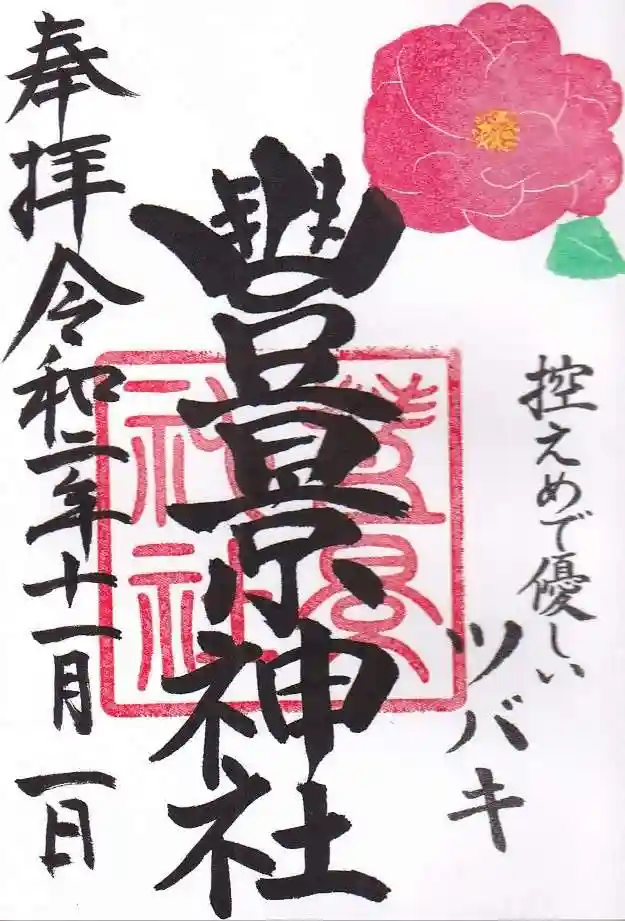 控えめで優しい
ツバキ
豐景神社
豐景神社
奉拝 令和二年十一月一日